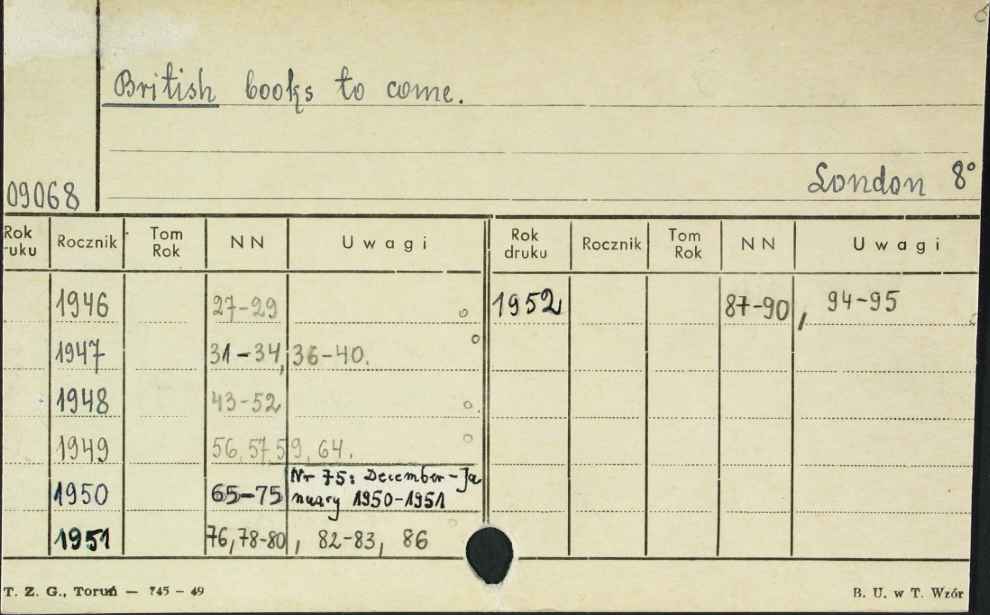 British books to come.
London 8°
09068
Rok druku Rocznik Tom Rok NN Uwagi Rok druku Rocznik Tom Rok NN Uwagi
1946 27-29 1952 87-90, 94-95
1947 31-34, 36-40.
1948 43-52
1949 56, 57, 59, 64.
1950 65-75 Nr 75: December-Ja
nuary 1950-1951
1951 76, 78-80, 82-83, 86
T. Z. G., Toruń — 745 - 49 B. U. w T. Wzór